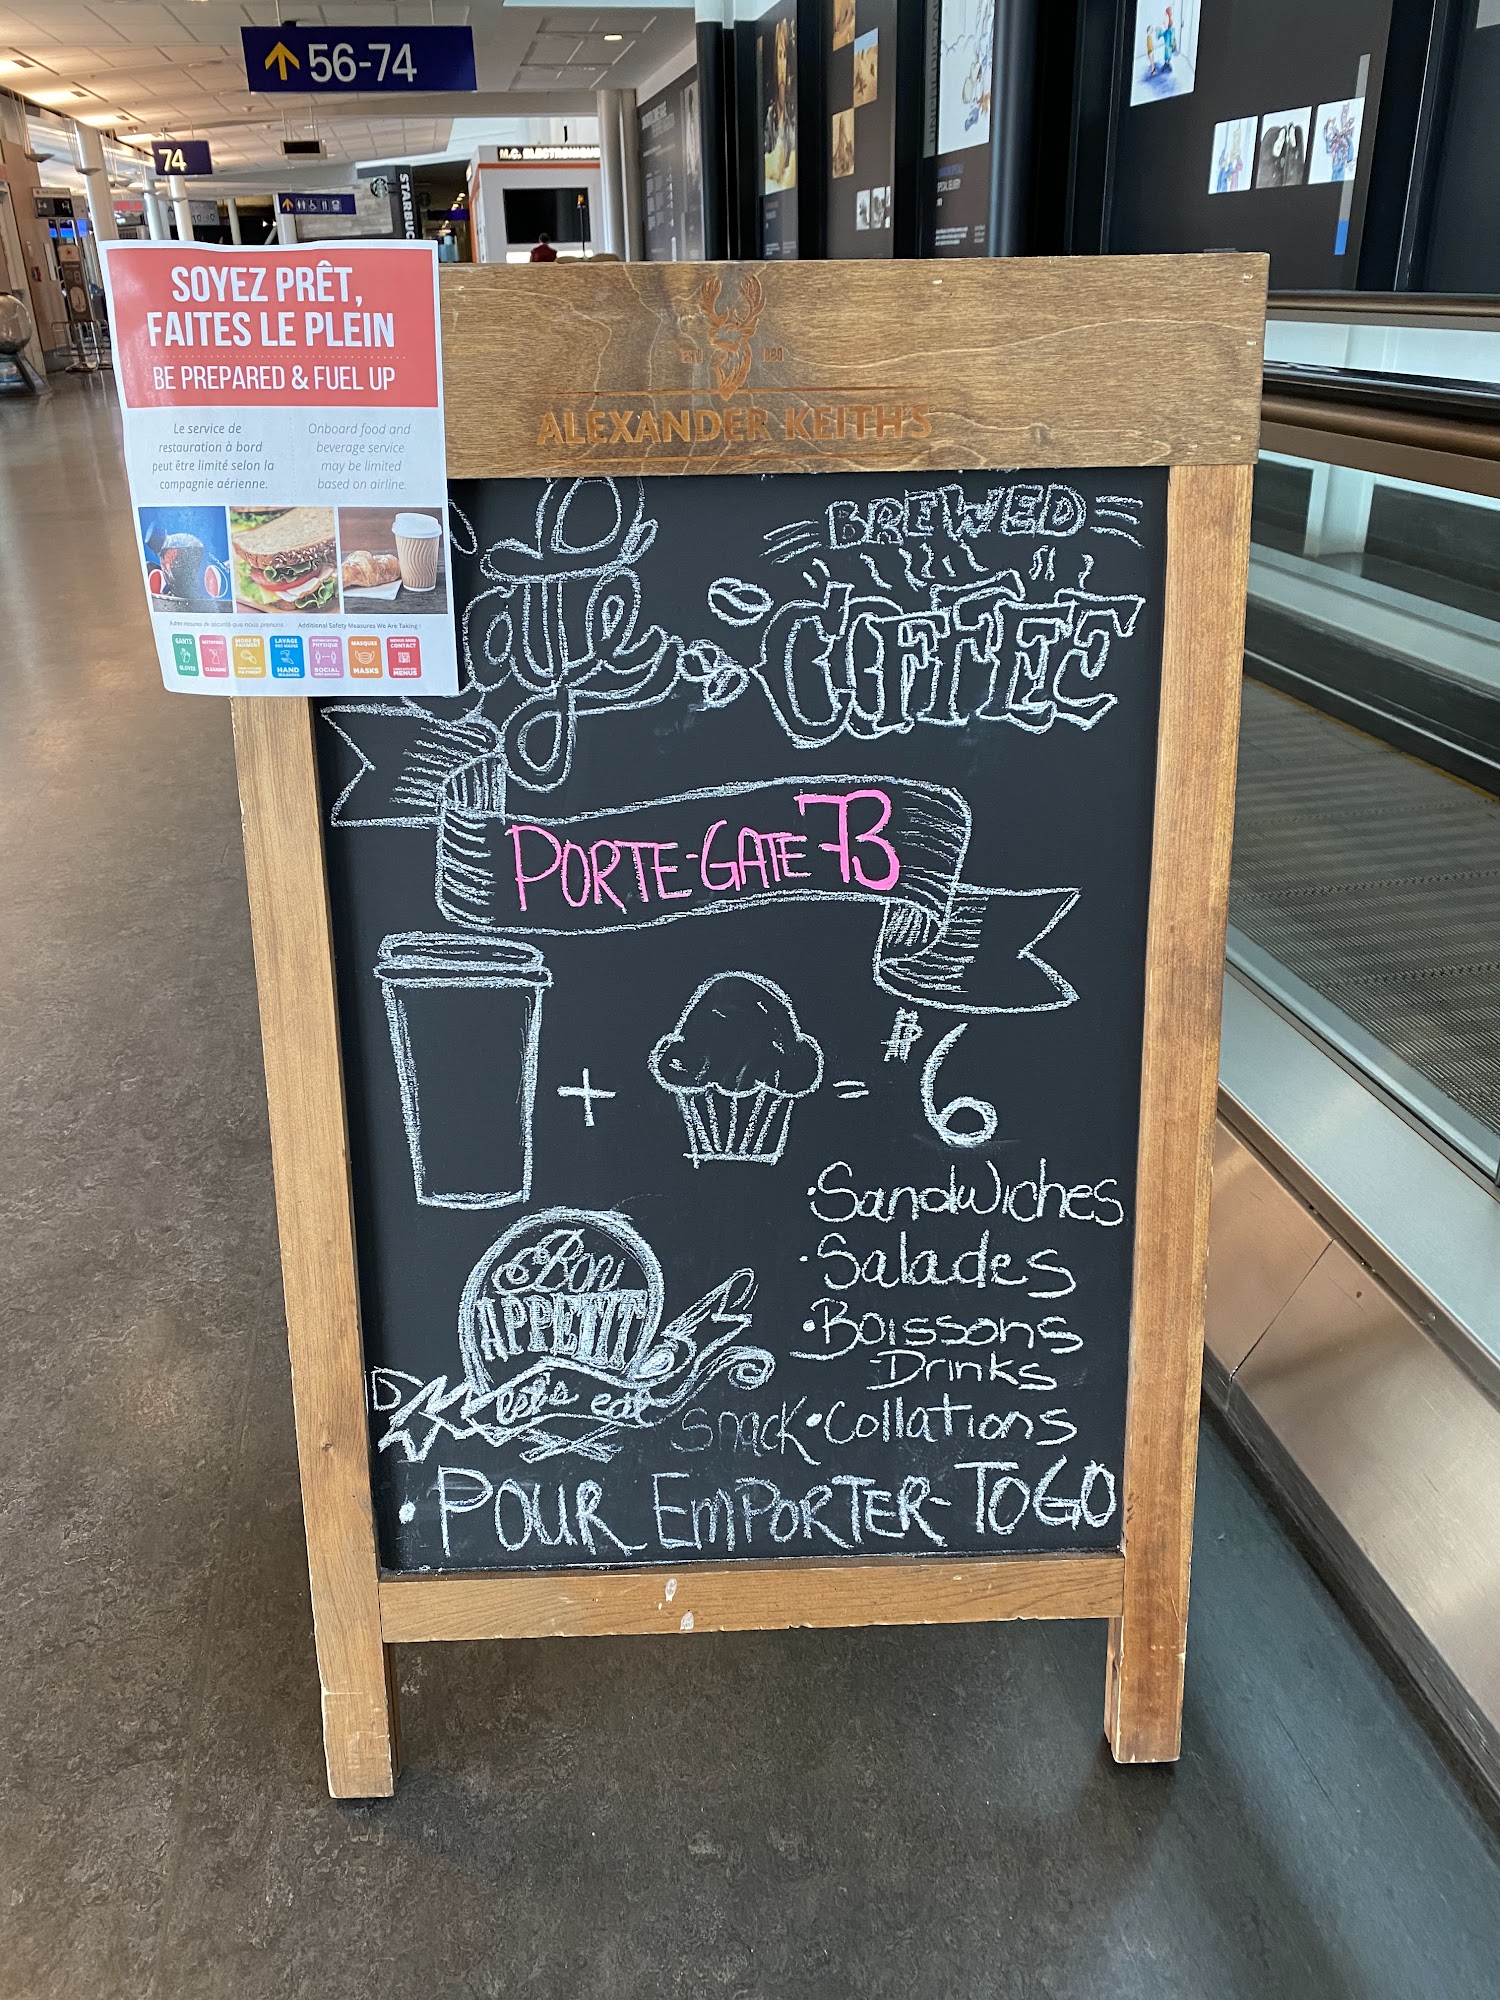 56-74
74
STARBUC
SOYEZ PRÊT,
FAITES LE PLEIN
BE PREPARED & FUEL UP
Le service de
restauration à bord
peut être limité selon la
compagnie aérienne.
Onboard food and
beverage service
may be limited
based on airline.
Additional Safety Measures We Are Taking:
GANTS
GLOVES
LAVAGE
DES MAINS
HAND
PHYSIQUE
SOCIAL
MASQUES
MASKS
CONTACT
MENUS
ALEXANDER KEITH'S
BREWED
COFFEE
PORTE-GATE 73
+ = $6
•Sandwiches
•Salades
•Boissons
-Drinks
Snack•Collations
Bon
APPETIT
let's eat
•POUR EMPORTER-TOGO